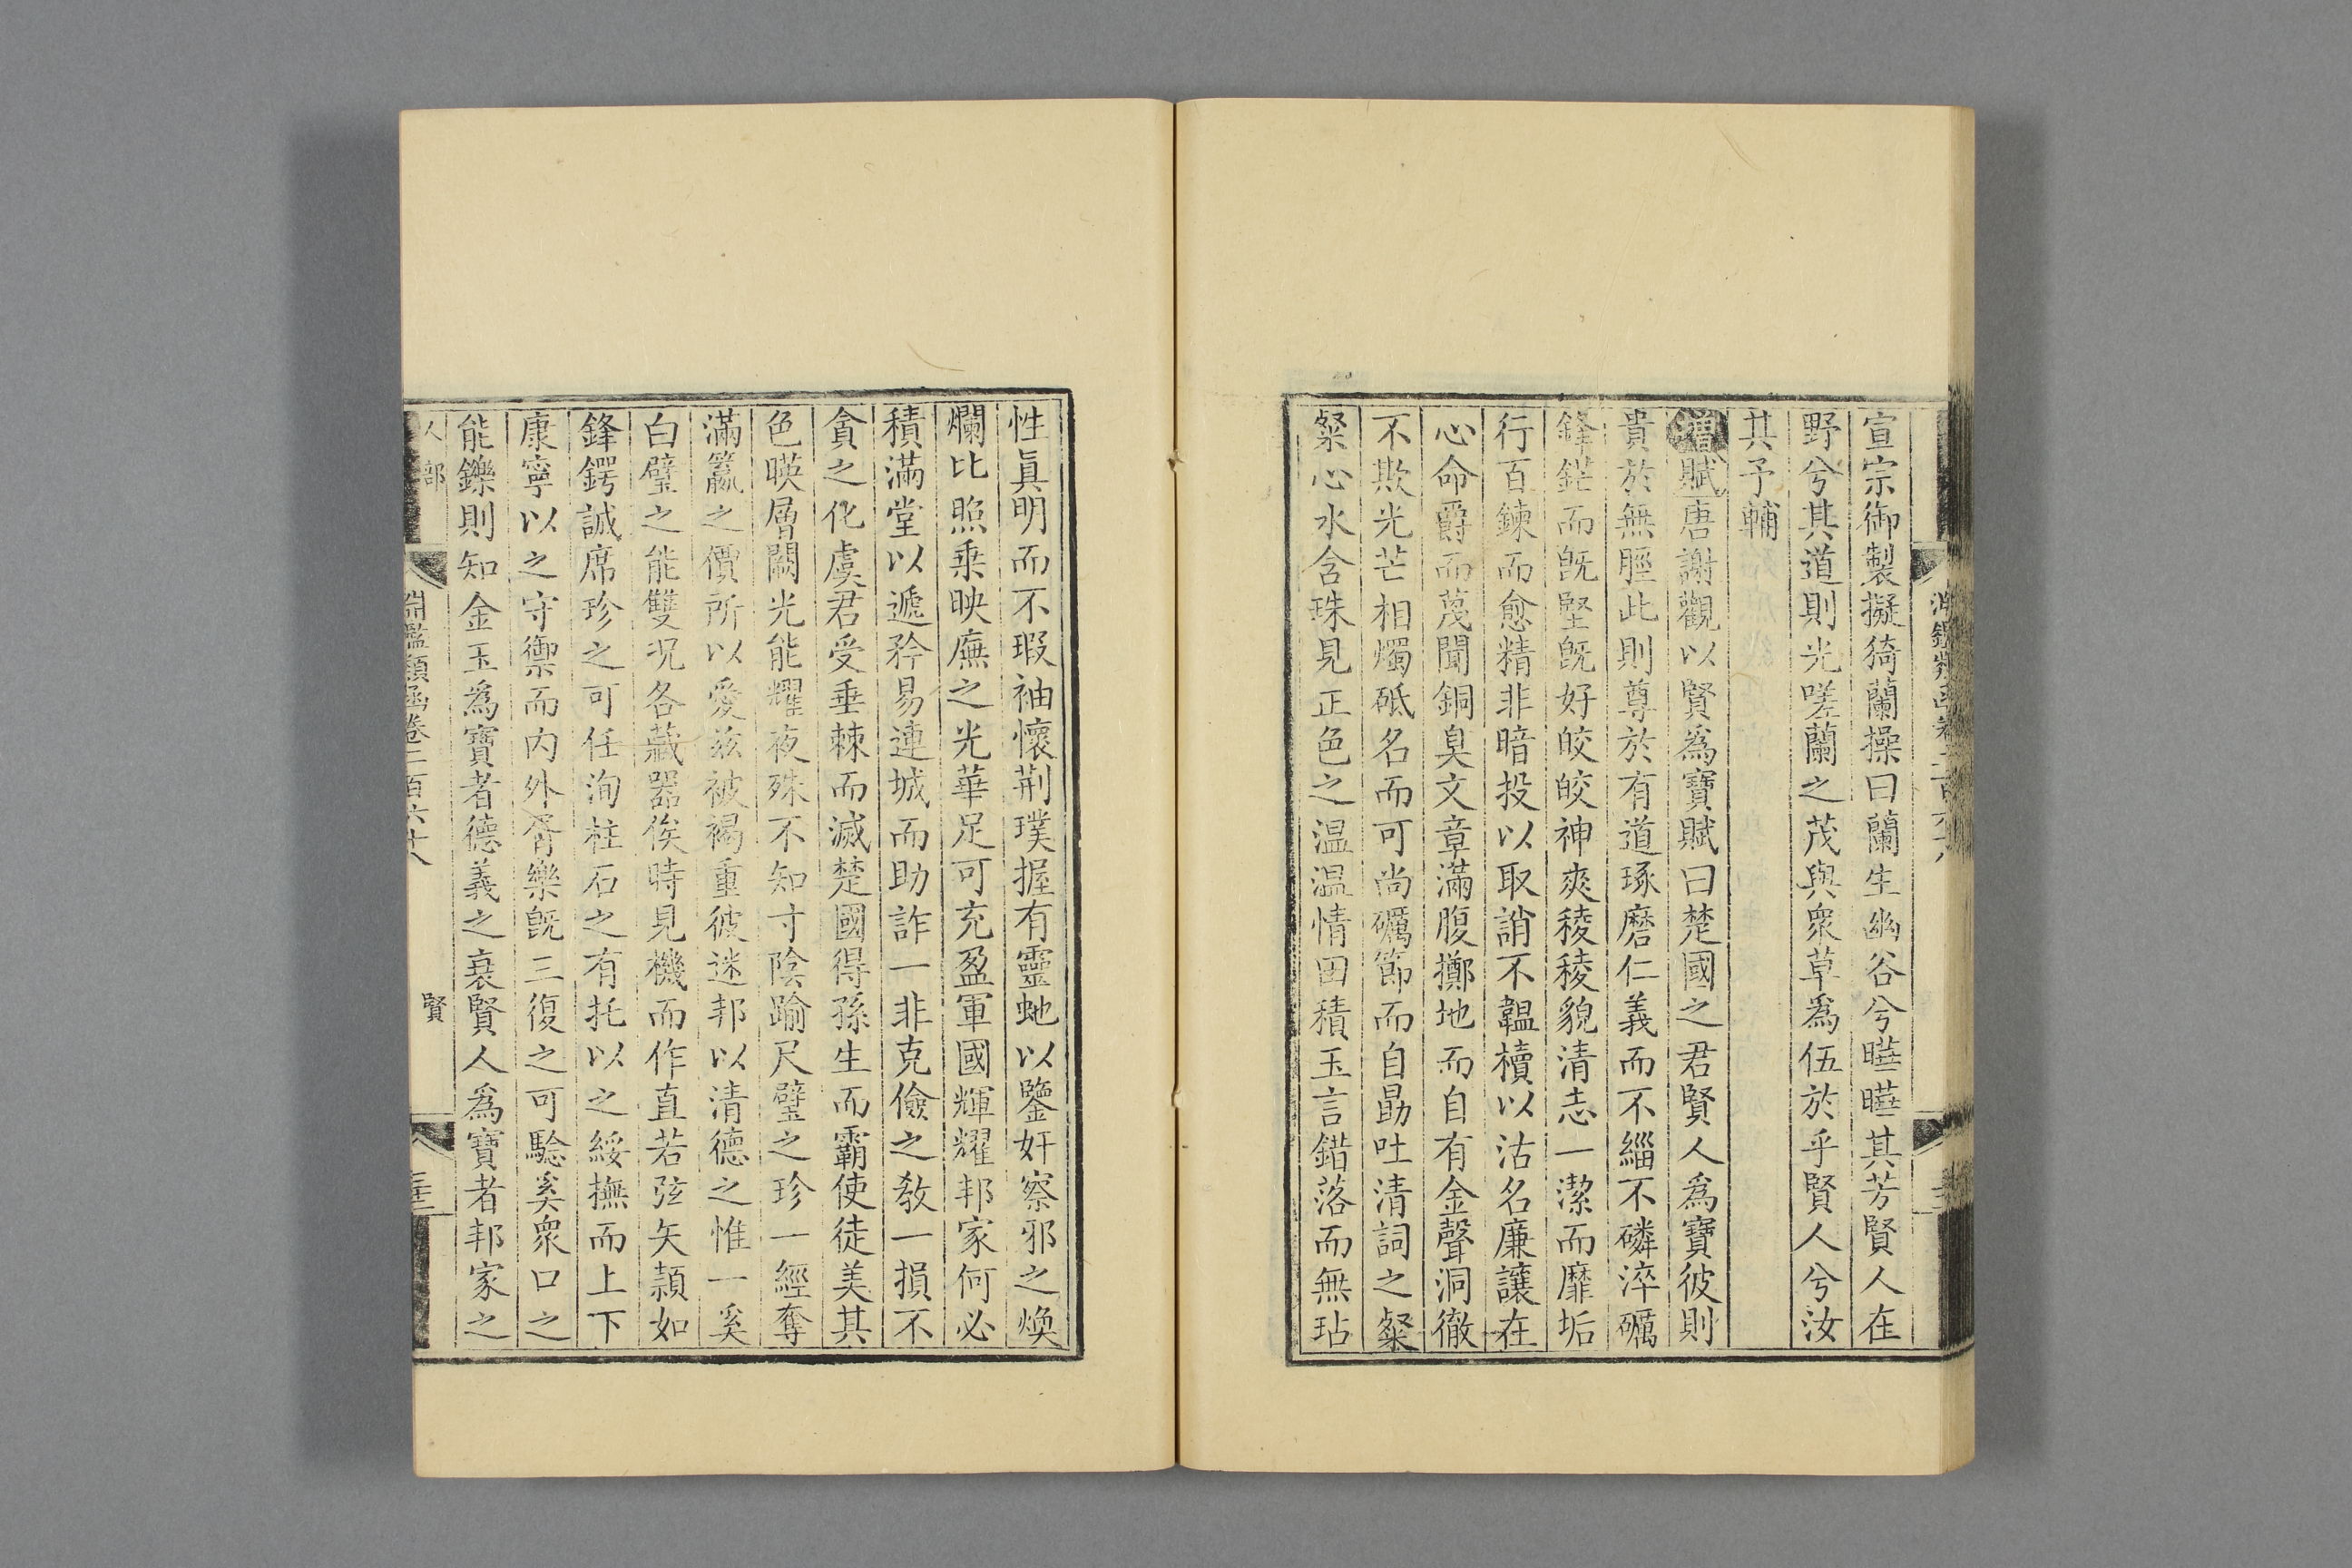 宣宗御製擬猗蘭操曰蘭生幽谷兮曄曄其芳賢人在
野兮其道則光嗟蘭之茂與衆草爲伍於乎賢人兮汝
其予輔
增賦唐謝觀以賢爲寶賦曰楚國之君賢人爲寶彼則
貴於無脛此則尊於有道琢磨仁義而不緇不磷淬礪
鋒鋩而旣堅旣好皎皎神爽稜稜貌清志一潔而靡垢
行百鍊而愈精非暗投以取誚不韞櫝以沽名廉讓在
心命爵而蔑聞銅臭文章滿腹擲地而自有金聲洞徹
不欺光芒相燭砥名而可尚礪節而自勗吐清詞之粲
粲心水含珠見正色之温温情田積玉言錯落而無玷
性眞明而不瑕袖懷荆璞握有靈虵以鑒奸察邪之煥
爛比照乗映廡之光華足可充盈軍國輝耀邦家何必
積滿堂以遞矜易連城而助詐一非克儉之敎一損不
貪之化虞君受垂棘而滅楚國得孫生而霸使徒美其
色暎層闕光能耀夜殊不知寸陰踰尺璧之珍一經奪
滿籯之價所以愛兹被褐重彼迷邦以清德之惟一奚
白璧之能雙况各藏器俟時見機而作直若弦矢頴如
鋒鍔誠席珍之可任洵柱石之有托以之綏撫而上下
康寧以之守禦而内外胥樂旣三復之可驗奚衆口之
能鑠則知金玉爲寶者德義之衰賢人爲寶者邦家之
人部
淵鑑類函卷二百六十八
賢